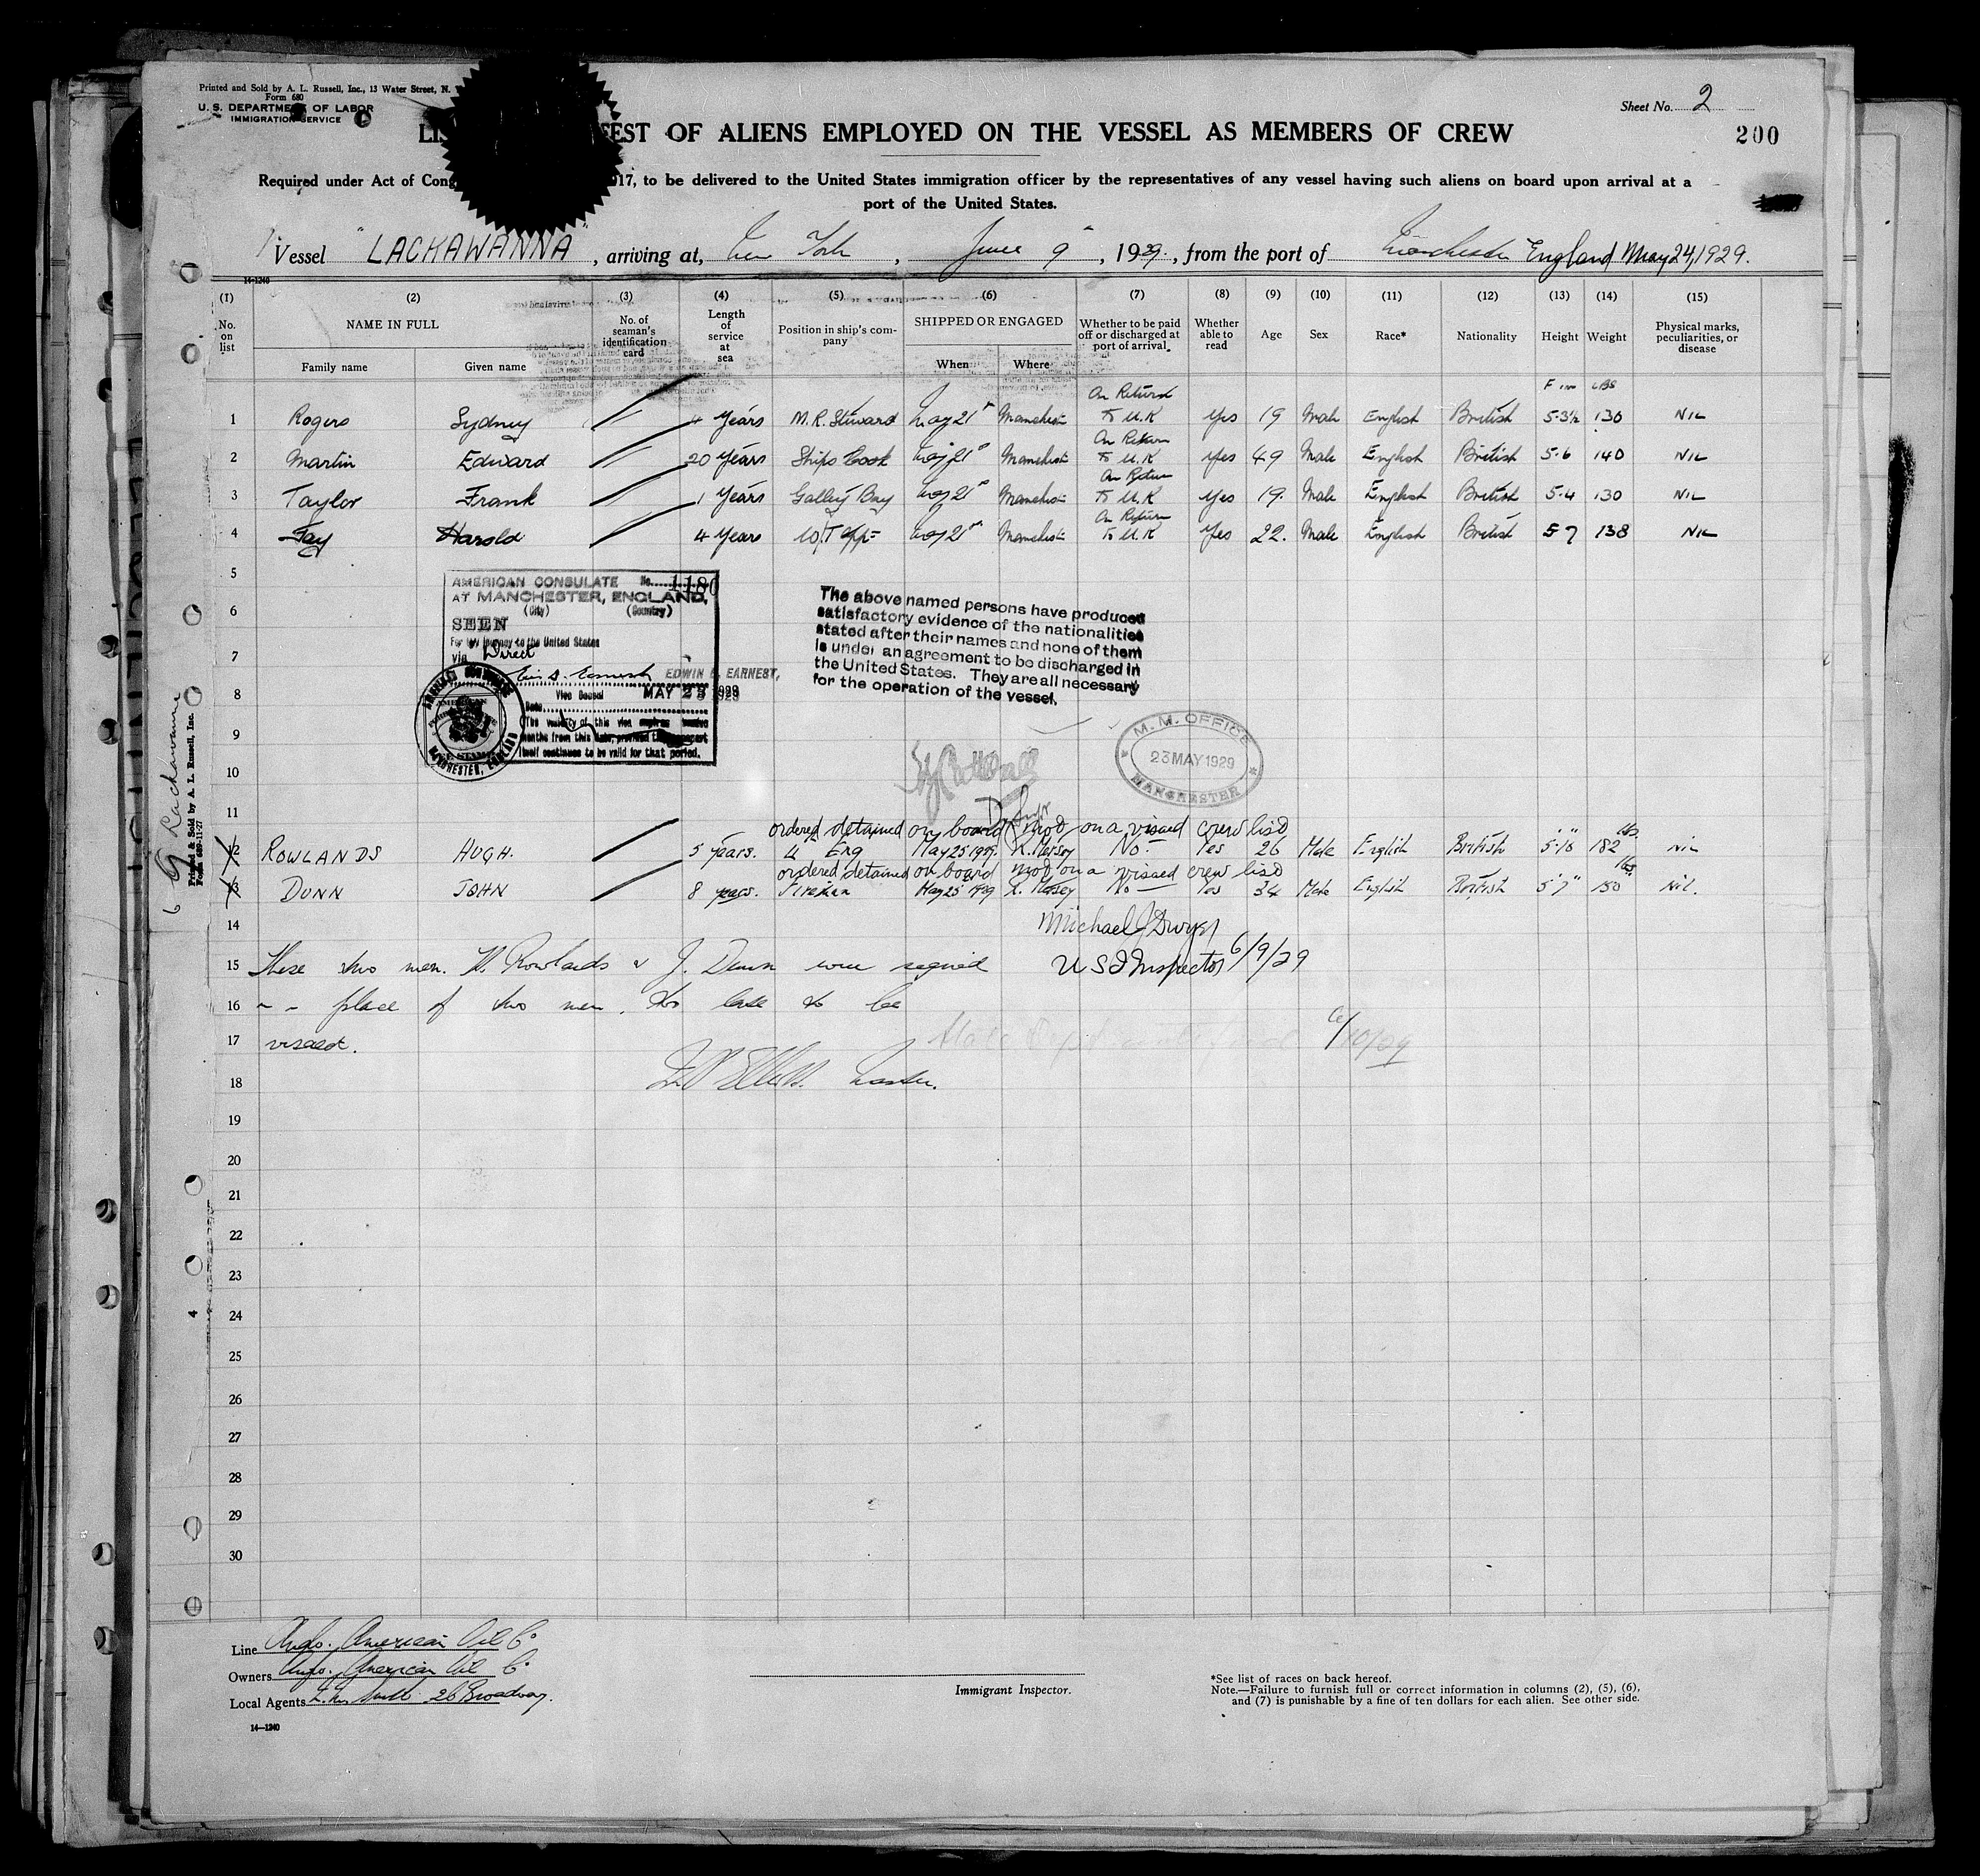 Printed and Sold by A. L. Russell, Inc., 13 Water Street, N.
Form 680
U. S. DEPARTMENT OF LABOR
IMMIGRATION SERVICE
Sheet No. 2
200
EST OF ALIENS EMPLOYED ON THE VESSEL AS MEMBERS OF CREW
Required under Act of Cong 17, to be delivered to the United States immigration officer by the representatives of any vessel having such aliens on board upon arrival at a
port of the United States.
Vessel "LACKAWANNA", arriving at, New York, June 9th, 1929, from the port of Manchester England May 24, 1929.
14-1240
(1) (2) (3) (4) (5) (6) (7) (8) (9) (10) (11) (12) (13) (14) (15)
No. on list NAME IN FULL No. of seaman's identification card Length of service at sea Position in ship's company SHIPPED OR ENGAGED Whether to be paid off or discharged at port of arrival Whether able to read Age Sex Race* Nationality Height Weight Physical marks, peculiarities, or disease
Family name Given name When Where
1 Rogers Sydney 4 Years M.R. Steward May 21st Manchester On Return To U.K Yes 19 Male English British 5-3½ 130 NIL
2 Martin Edward 20 Years Ships Cook May 21st Manchester On Return To U.K Yes 49 Male English British 5-6 140 NIL
3 Taylor Frank 1 Years Galley Boy May 21st Manchester On Return To U.K Yes 19 Male English British 5-4 130 NIL
4 Fay Harold 4 Years W/T Opp May 21st Manchester On Return To U.K Yes 22. Male English British 5-7 138 NIL
5
6
7
8
9
10
11
AMERICAN CONSULATE No. 1180
AT MANCHESTER, ENGLAND,
(City) (Country)
SEEN
For the journey to the United States
via Direct
EDWIN B. EARNEST,
Vice Consul MAY 23 1929
Date
The validity of this visa expires twelve
months from this date, provided the passport
itself continues to be valid for that period.
The above named persons have produced
satisfactory evidence of the nationalities
stated after their names and none of them
is under an agreement to be discharged in
the United States. They are all necessary
for the operation of the vessel.
M. M. OFFICE
23 MAY 1929
MANCHESTER
ordered detained on board not on a visaed crew list
12 ROWLANDS HUGH. 5 years. 4 Eng May 25 1929 R. Mersey No Yes 26 Male English British 5'10" 182 lbs nil
ordered detained on board not on a visaed crew list
13 DUNN JOHN 8 years. Fireman May 25 1929 R. Mersey No Yes 34 Male English British 5'7" 150 lbs Nil.
14 Michael J Dwyer
15 These two men. H. Rowlands & J. Dunn were signed
U S I Inspector 6/9/29
16 place of two men, too late to be
17 visaed.
6/10/29
18 Master.
19
20
21
22
23
24
25
26
27
28
29
30
6 Lackawanna
Printed & Sold by A. L. Russell, Inc.
Form 689-11-27
4
Line Anglo. American Oil Co
Owners Anglo. American Oil Co
Local Agents 26 Broadway.
14—1240
Immigrant Inspector.
*See list of races on back hereof.
Note.—Failure to furnish full or correct information in columns (2), (5), (6),
and (7) is punishable by a fine of ten dollars for each alien. See other side.